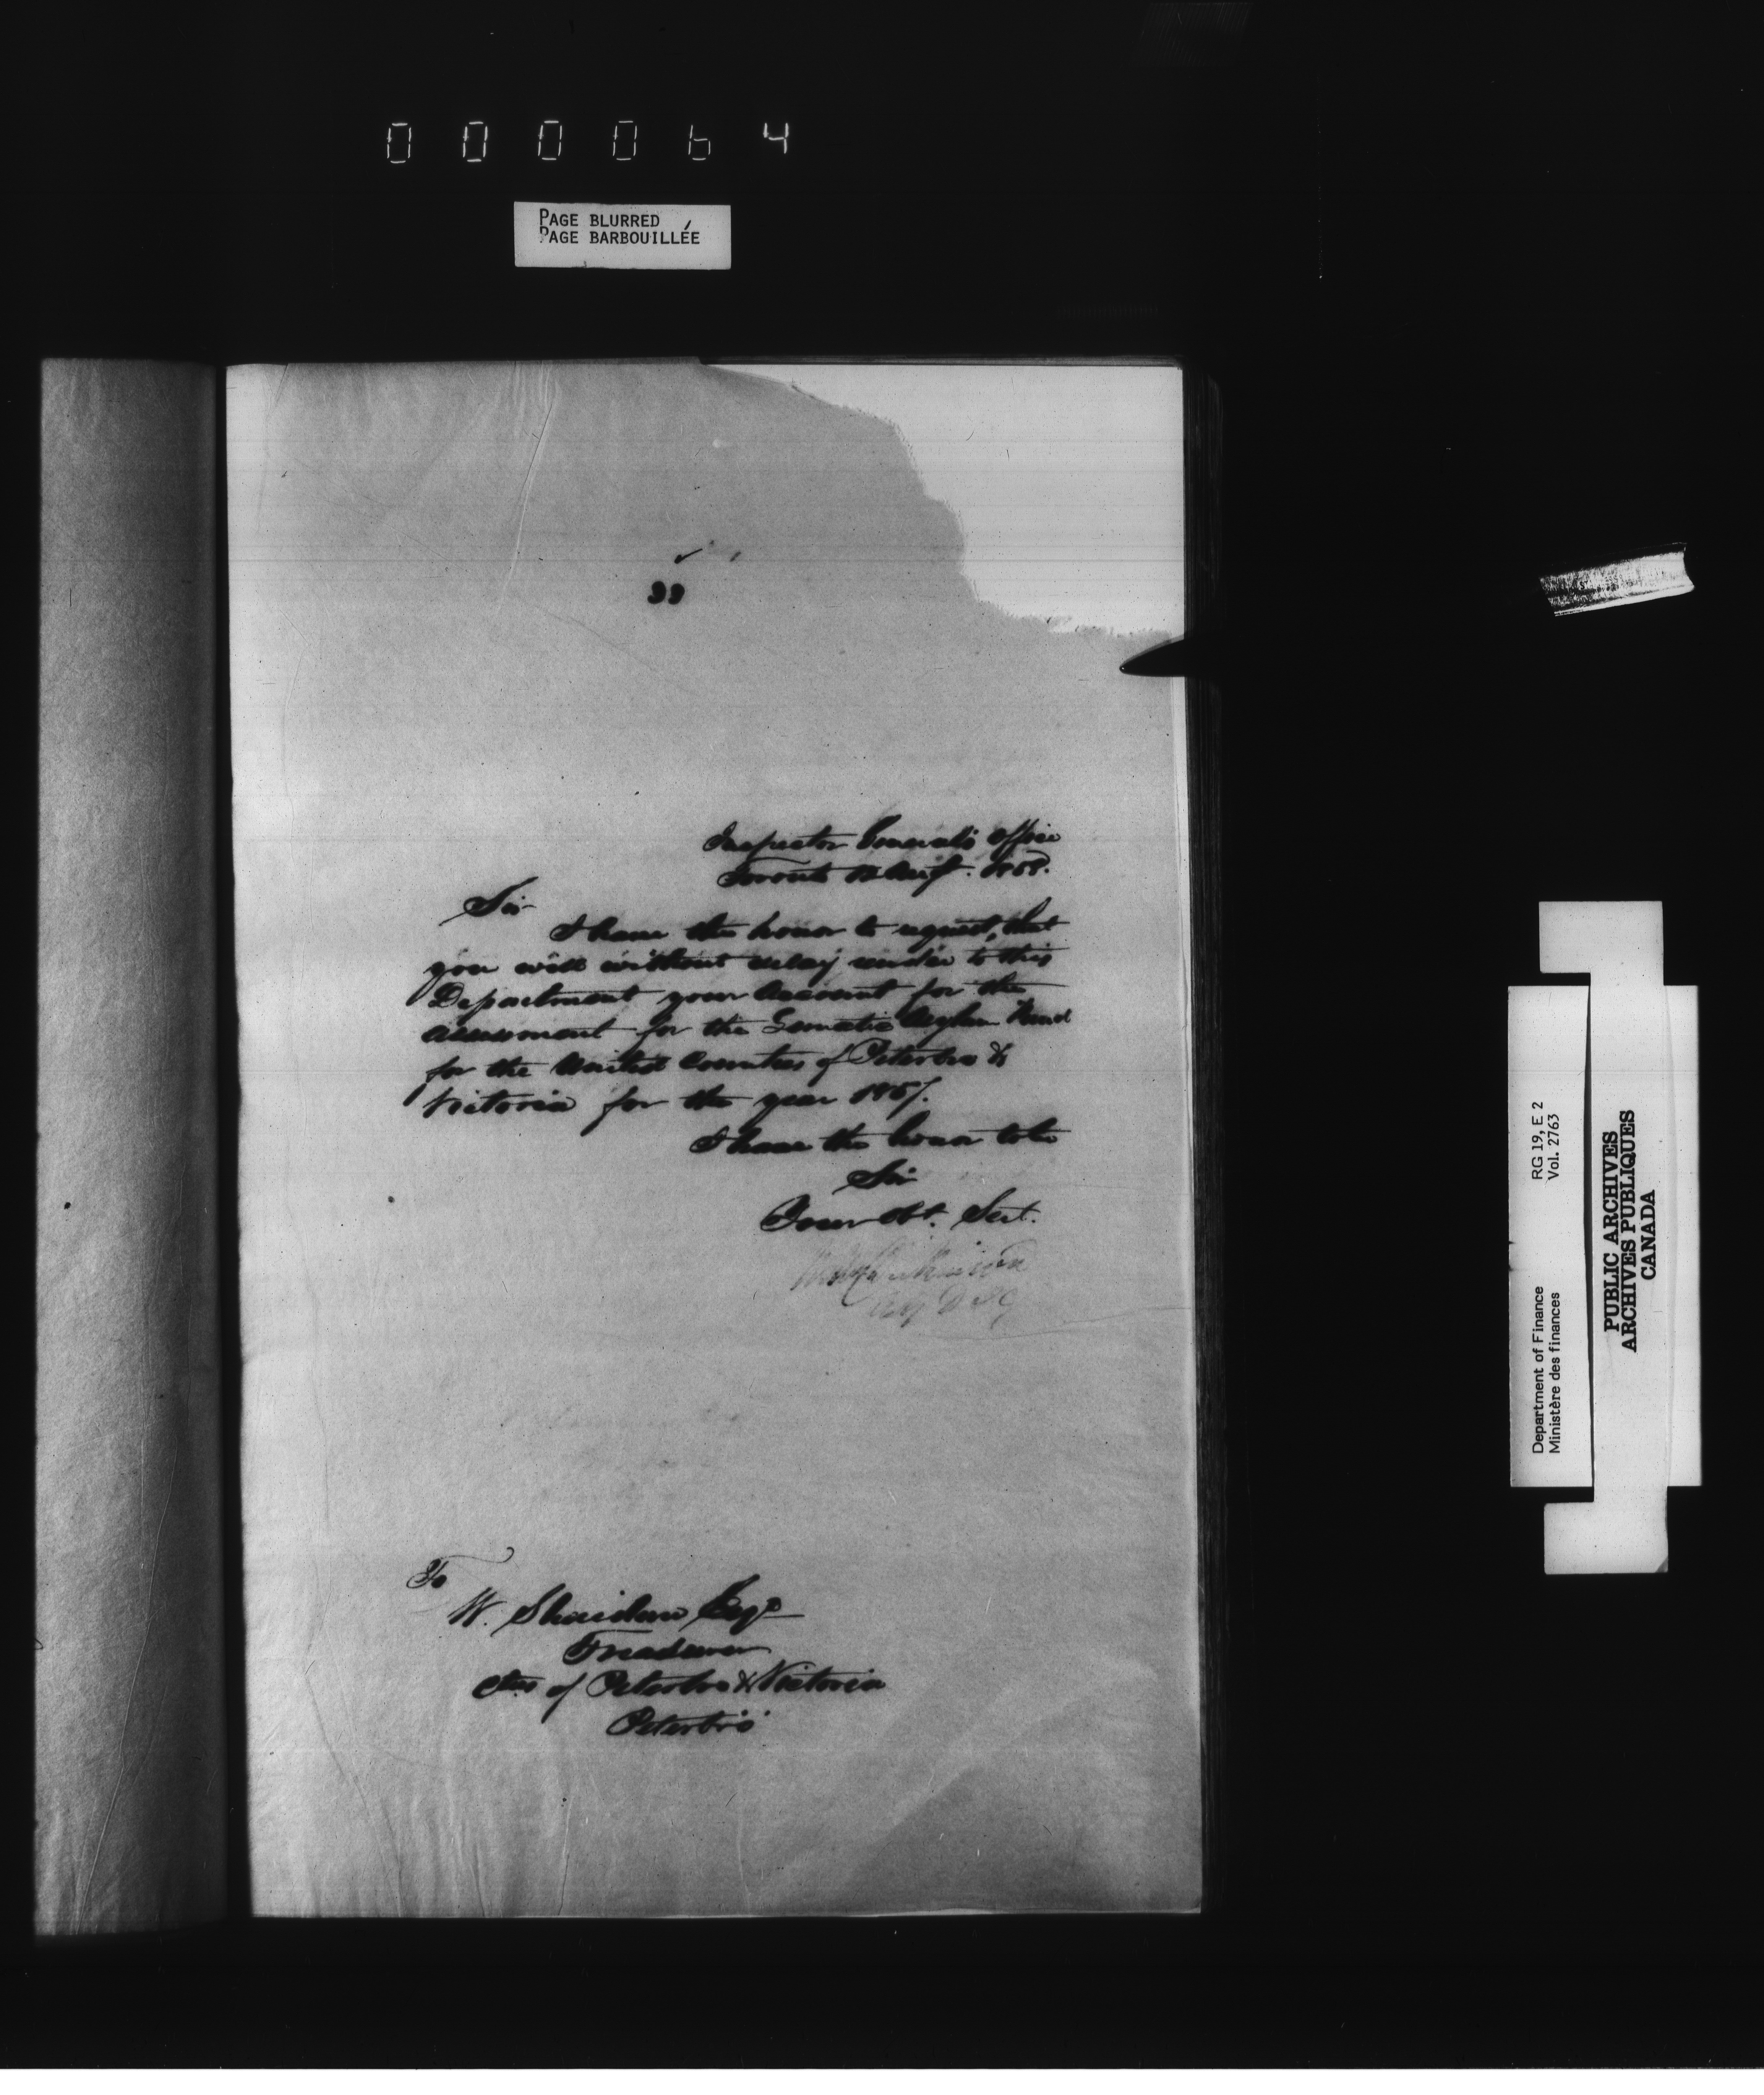 000064
PAGE BLURRED
PAGE BARBOUILLÉE
33
Inspector General's Office
Toronto Augt. 1858.
Sir
I have the honor to request, that
you will without delay render to this
Department your Account for the
assessment for the Lunatic Asylum Fund
for the United Counties of Peterboro &
Victoria for the year 1857.
I have the honor to be
Sir
Your Obt. Sert.
Wm Dickinson
To
W. Sheridan Esqr
Treasurer
Cties of Peterboro & Victoria
Peterboro'
Department of Finance RG 19, E 2
Ministère des finances Vol. 2763
PUBLIC ARCHIVES
ARCHIVES PUBLIQUES
CANADA